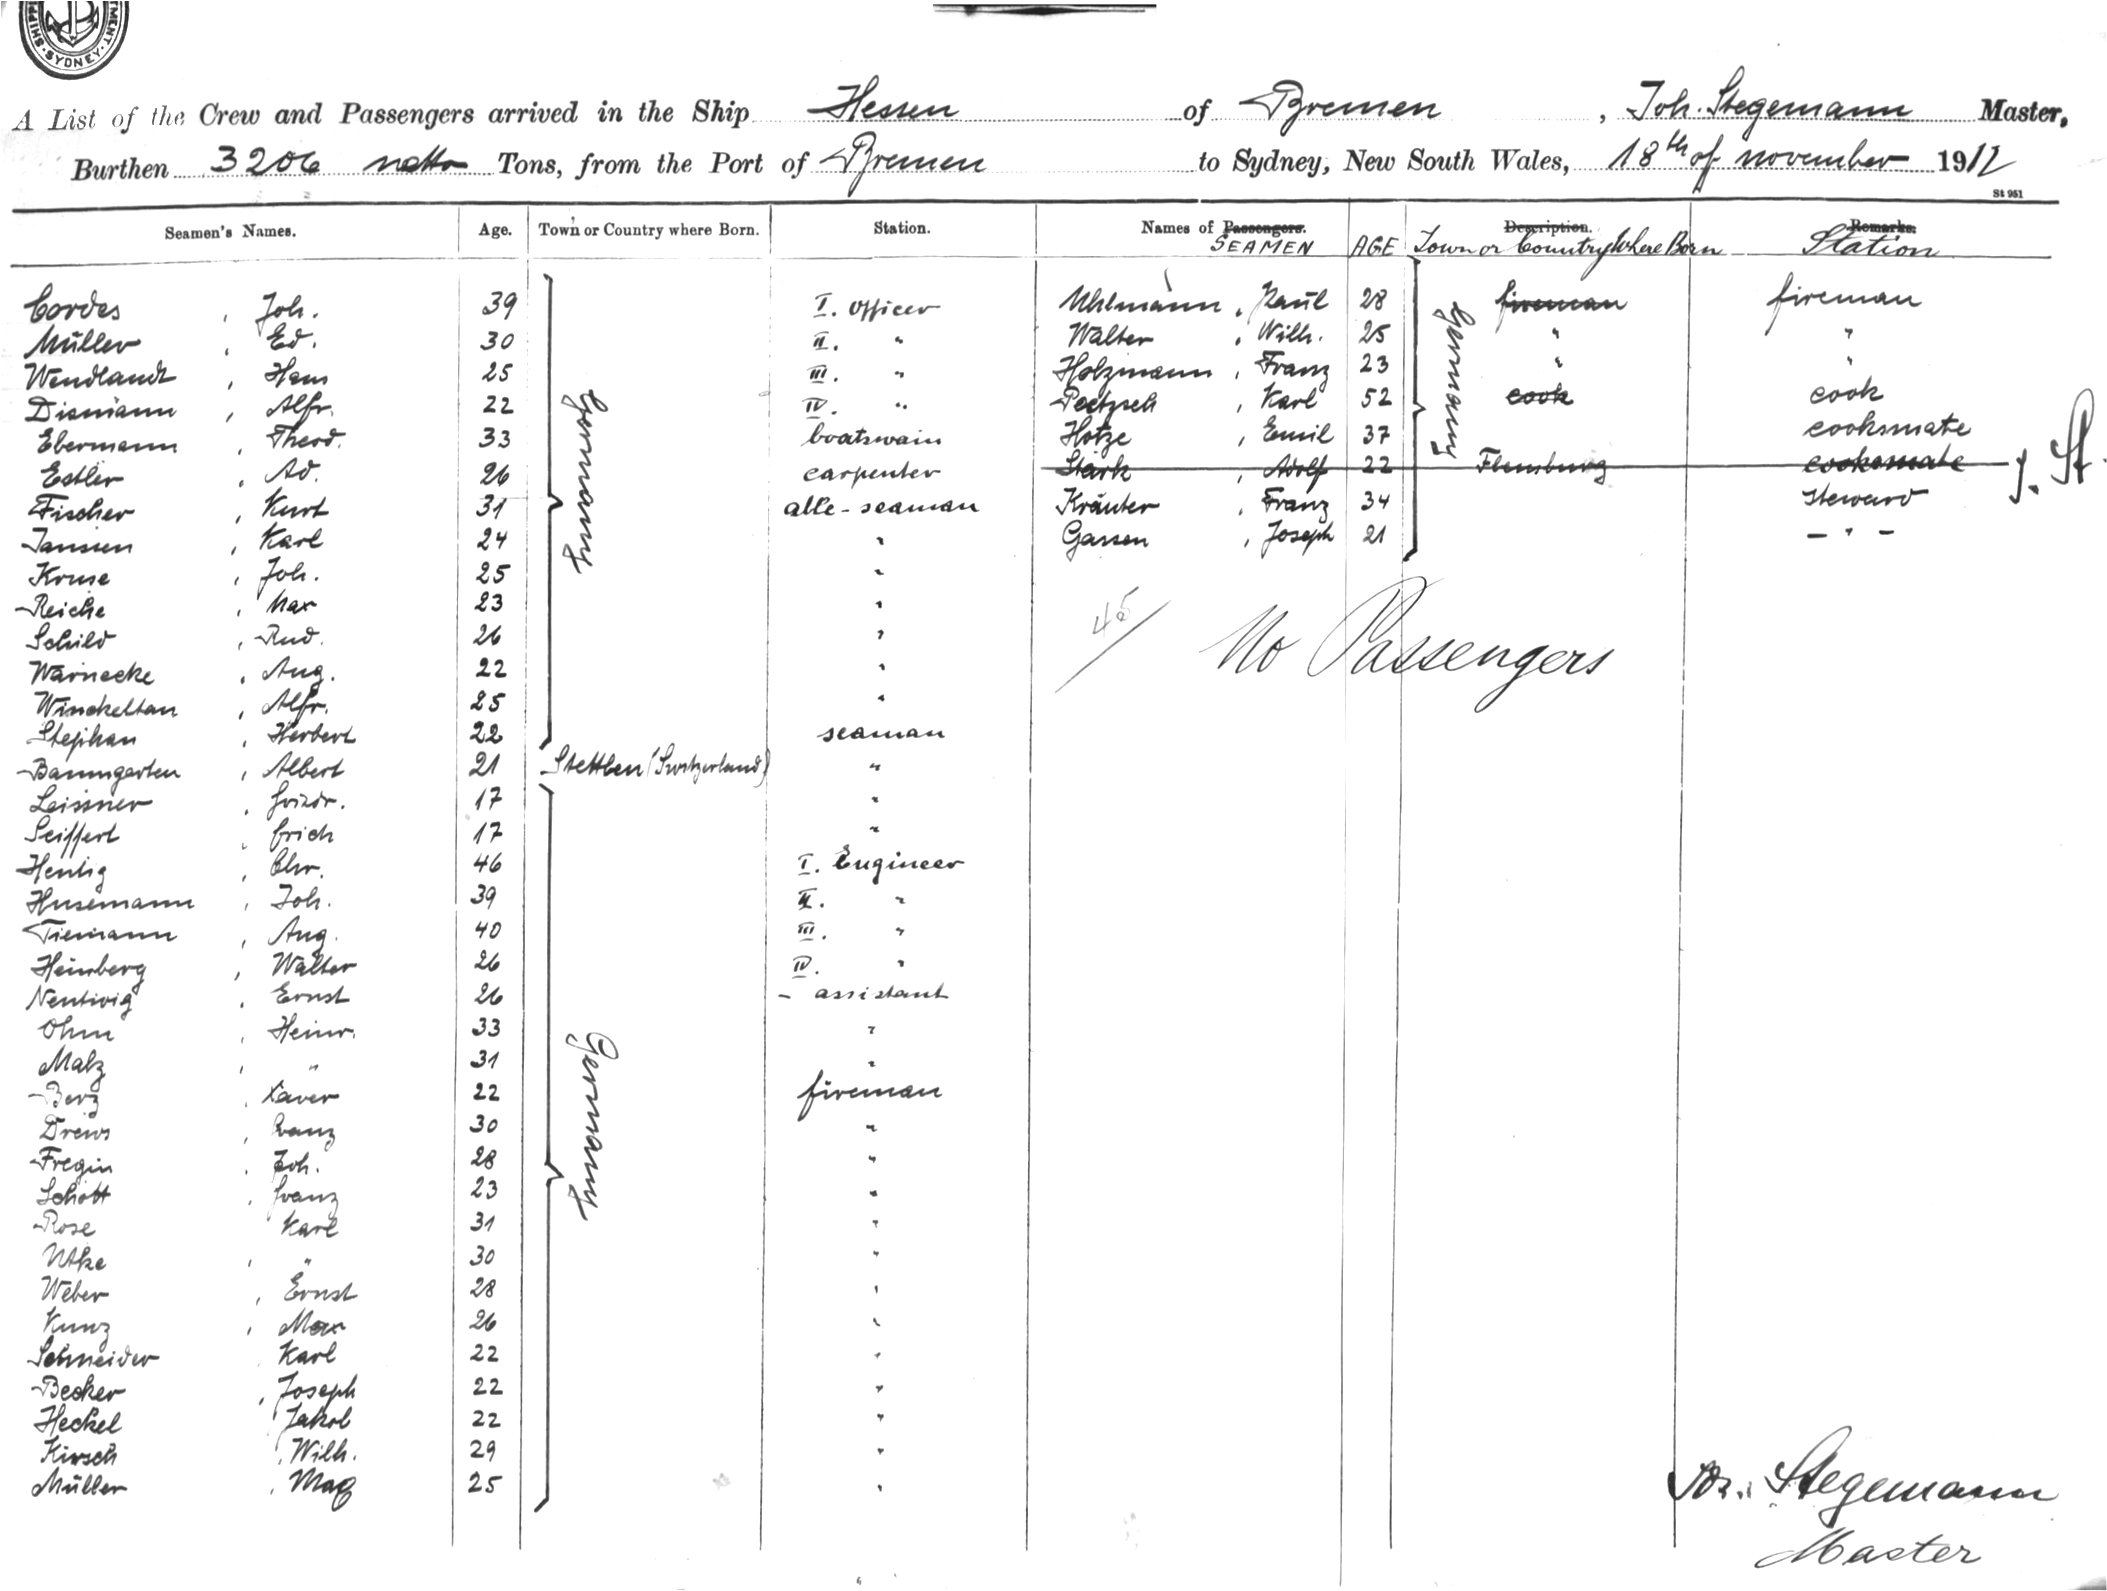 SHIPPI TMENT. SYDNEY
A List of the Crew and Passengers arrived in the Ship Hessen of Bremen, Joh. Stegemann Master,
Burthen 3206 netto Tons, from the Port of Bremen to Sydney, New South Wales, 18th of november 1912
St 951
Seamen's Names. Age. Town or Country where Born. Station. Names of Passengers. SEAMEN AGE Description. Town or Country Where Born Remarks. Station
Cordes, Joh. 39 Germany I. Officer Uhlmann, Paul 28 Germany fireman fireman
Müller, Ed. 30 II. " Walter, Wilh. 25 " "
Wendlandt, Hans 25 III. " Holzmann, Franz 23 " "
Dismann, Alfr. 22 IV. " Peetzsch, Karl 52 cook cook
Ebermann, Theod. 33 boatswain Hotze, Emil 37 cooksmate
Estler, Ad. 26 carpenter Stark, Adolf 22 Flensburg cooksmate J. St.
Fischer, Kurt 31 able-seaman Kräuter, Franz 34 steward
Janssen, Karl 24 " Gassen, Joseph 21 - " -
Kruse, Joh. 25 "
Reiche, Max 23 "
Schild, Rud. 26 "
Warnecke, Aug. 22 "
Winckeltau, Alfr. 25 "
45 No Passengers
Stephan, Herbert 22 seaman
Baumgarten, Albert 21 Stettlen (Switzerland) "
Leissner, Friedr. 17 Germany "
Seiffert, Erich 17 "
Hentig, Chr. 46 I. Engineer
Husemann, Joh. 39 II. "
Tiemann, Aug. 40 III. "
Heinberg, Walter 26 IV. "
Nentwig, Ernst 26 - assistant
Ohm, Heinr. 33 "
Malz, " 31 "
Berz, Xaver 22 fireman
Drews, Franz 30 "
Fregin, Joh. 28 "
Schott, Franz 23 "
Rose Karl 31 "
Utke, " 30 "
Weber, Ernst 28 "
Kunz, Max 26 "
Schneider, Karl 22 "
Becker, Joseph 22 "
Heckel, Jakob 22 "
Kirsch, Wilh. 29 "
Müller, Max 25 "
Joh. Stegemann
Master